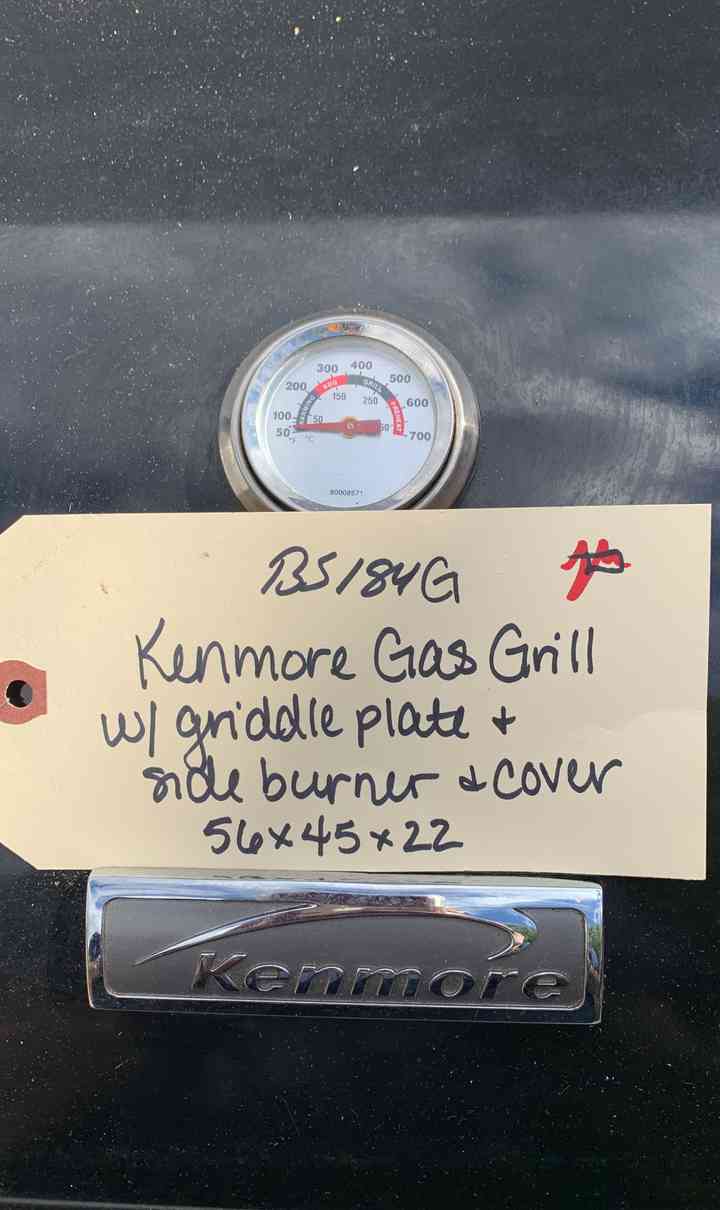 300 400
200 500
BBQ GRILL
150 250
600
SMOKING PREHEAT
100 50
50 700
°F °C
80008571
BS184G
Kenmore Gas Grill
w/ griddle plate +
side burner & cover
56x45x22
Kenmore